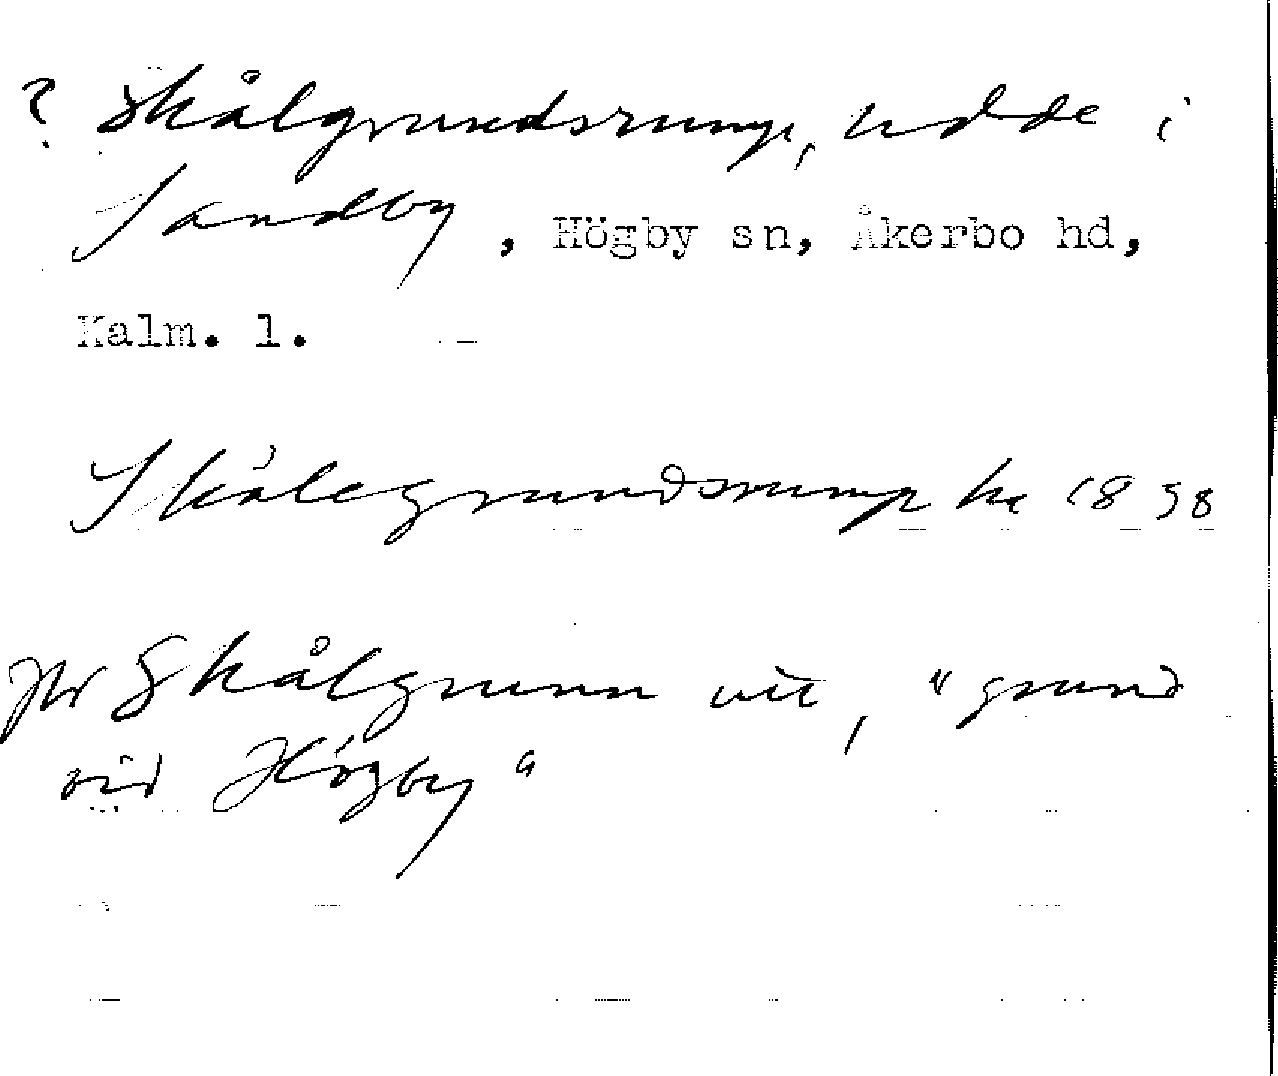 ? Skålgrundsrump, udde i
Sandby, Högby sn, Åkerbo hd,
Kalm. l.
Skålegrundsrump ha 1838
Jfr Skålgrunn utt, "grund
vid Högby"